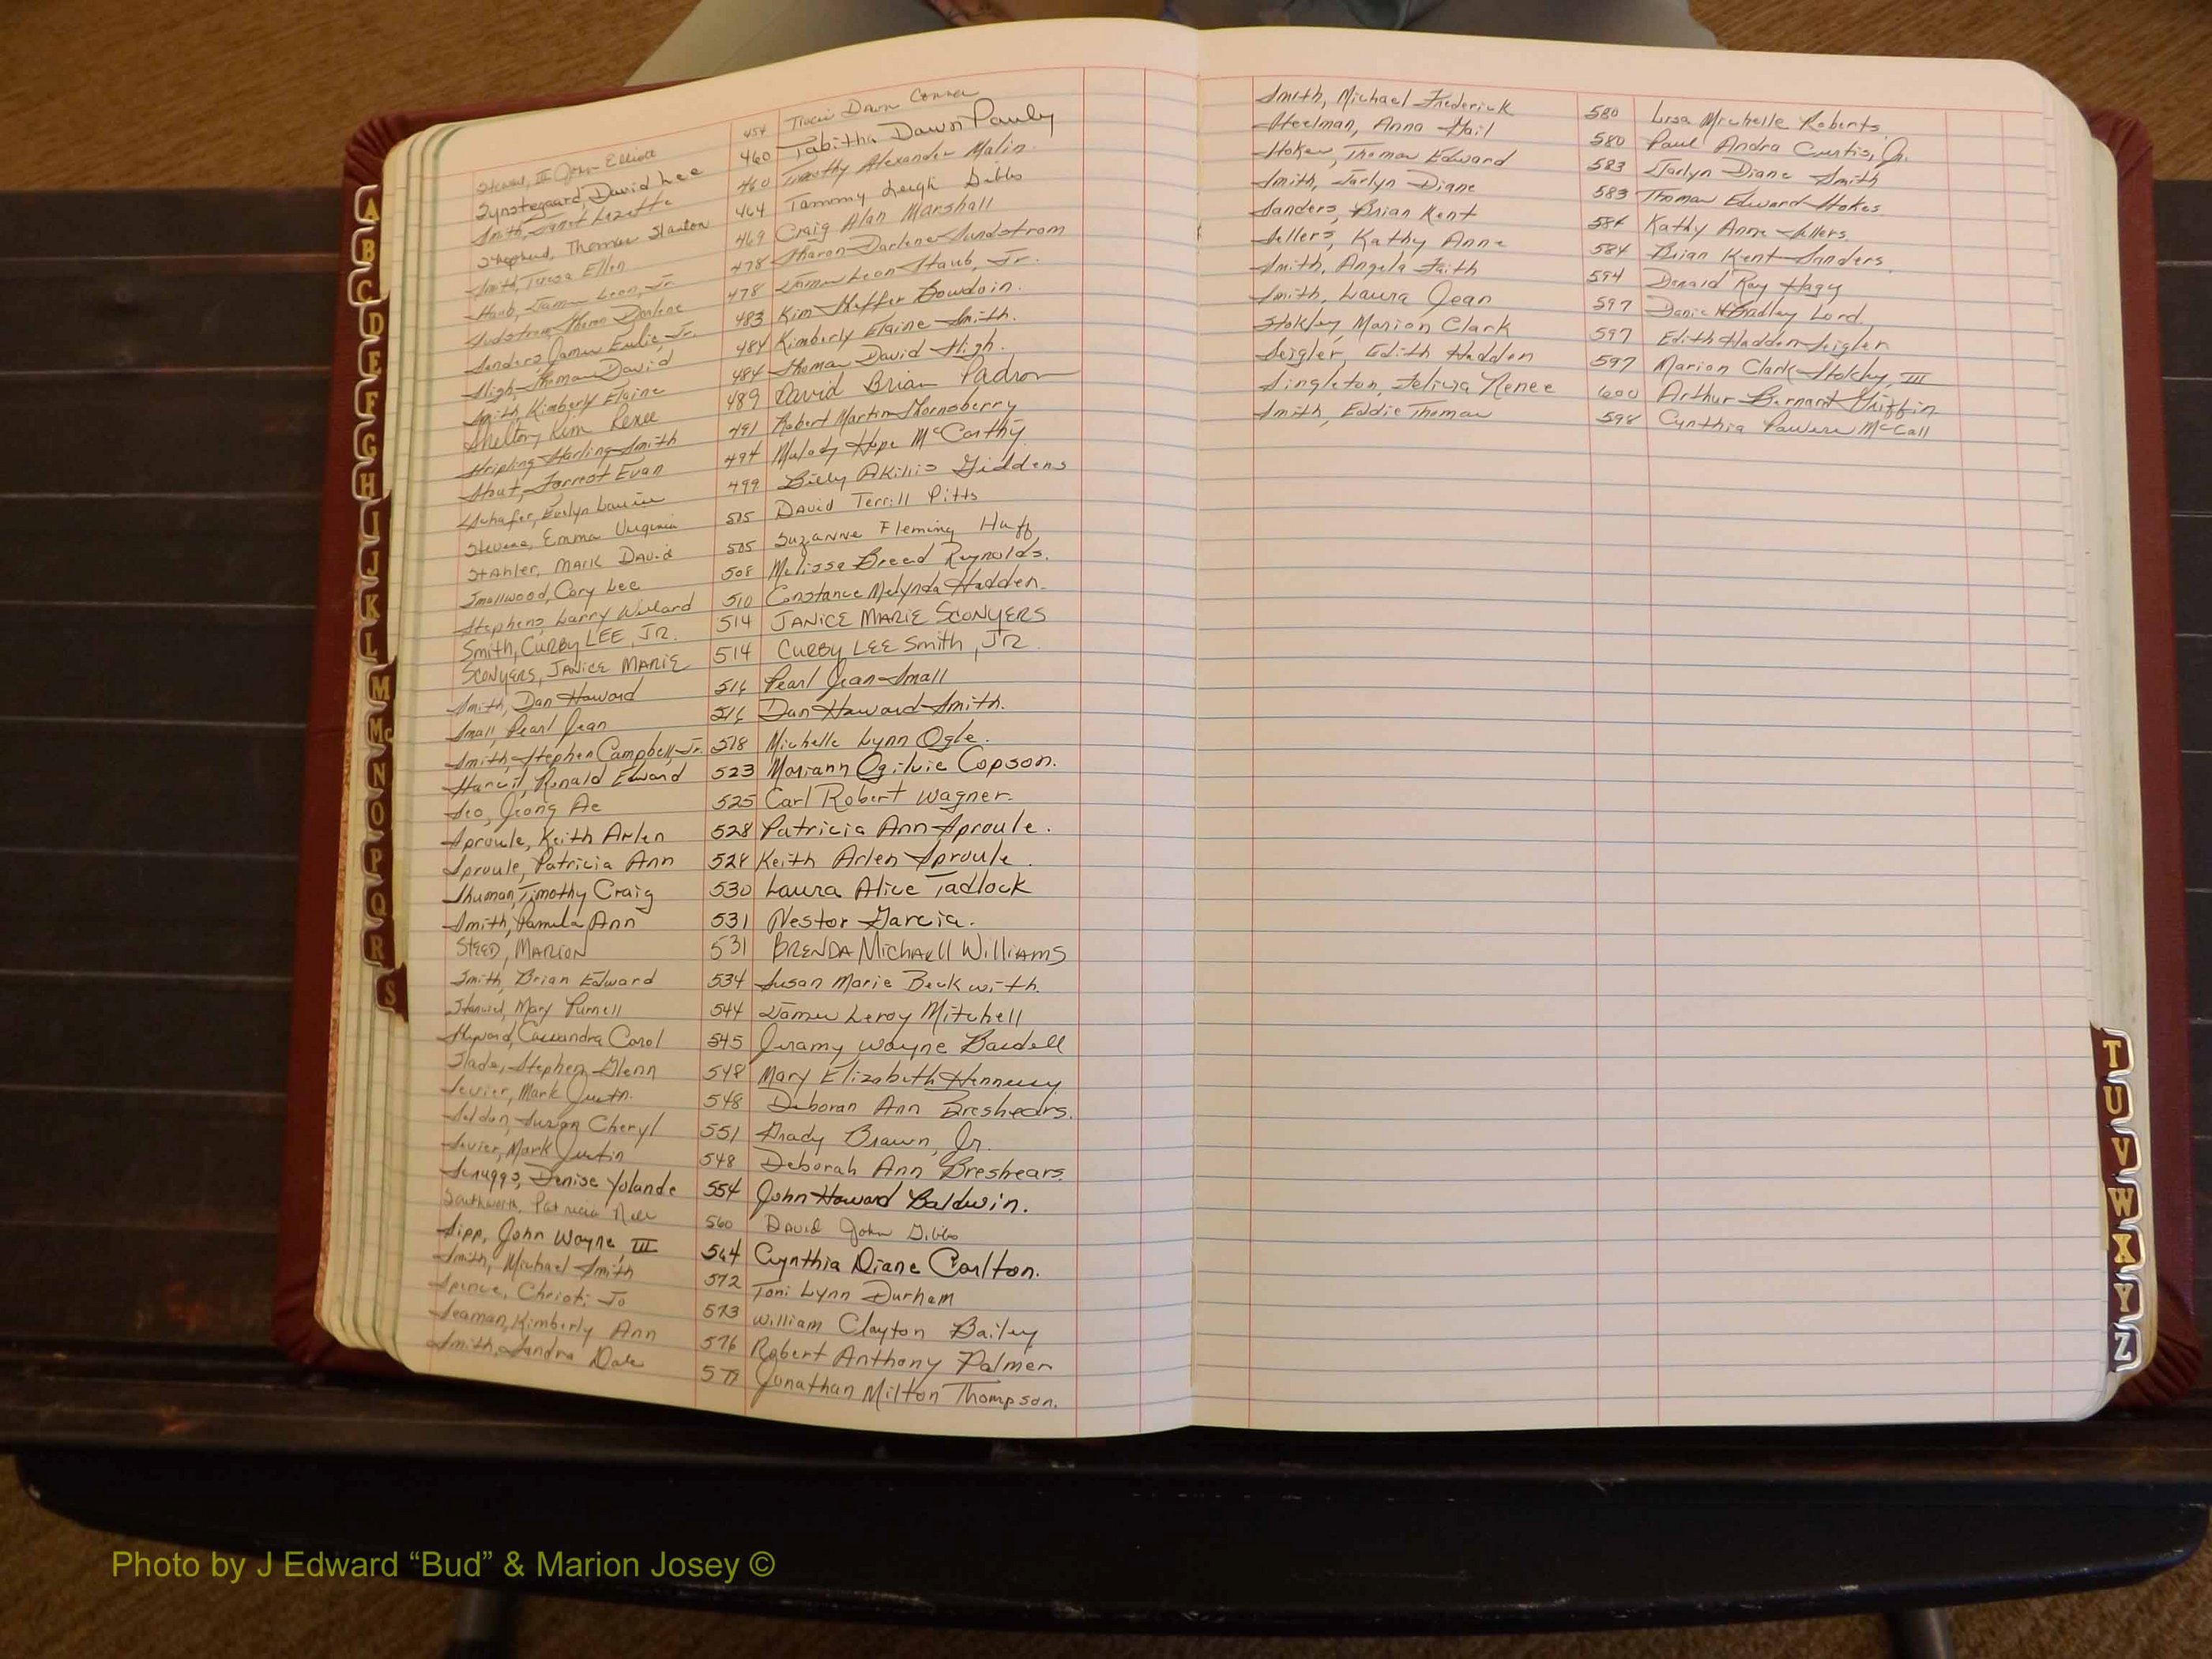 Steward, III John Elliott 454 Tracie Dawn Conner
Synstegaard, David Lee 460 Tabitha Dawn Pauly
Smith, Janet Lezette 460 Timothy Alexander Malin.
Shepherd, Thomas Stanton 464 Tammy Leigh Gibbs
Smith, Teresa Ellen 469 Craig Alan Marshall
Staub, James Leon, Jr. 478 Sharon Darlene Sundstrom
Sudstrom, Sharon Darlene 478 James Leon Staub, Jr.
Sanders, James Emlie, Jr. 483 Kim Sheffer Bowdoin.
Sligh, Thomas David 484 Kimberly Elaine Smith.
Smith, Kimberly Elaine 484 Thomas David Sligh.
Shelton, Kim Renee 489 David Brian Padron
Stripling Starling Smith 491 Robert Martin Thornsberry
Stout, Forrest Evan 494 Melody Hope McCarthy
Schafer, Evelyn Louise 499 Billy Akillis Giddens
Stevens, Emma Virginia 505 David Terrill Pitts
Stahler, Mark David 505 Suzanne Fleming Huff
Smallwood, Cory Lee 508 Melissa Breed Reynolds.
Stephens, Larry Willard 510 Constance Melynda Hadden.
Smith, CURBY LEE, JR. 514 JANICE MARIE SCONYERS
SCONYERS, JANICE MARIE 514 CURBY LEE Smith, JR.
Smith, Dan Howard 516 Pearl Jean Small
Small, Pearl Jean 516 Dan Howard Smith.
Smith, Stephen Campbell, Jr. 518 Michelle Lynn Ogle.
Ronald Edward 523 Mariann Ogilvie Copson.
Seo, Jeong Ae 525 Carl Robert Wagner.
Sproule, Keith Arlen 528 Patricia Ann Sproule.
Sproule, Patricia Ann 528 Keith Arlen Sproule.
Shuman, Timothy Craig 530 Laura Alice Tadlock
Smith, Pamela Ann 531 Nestor Garcia.
STEED, MARION 531 BRENDA Michaell Williams
Smith, Brian Edward 534 Susan Marie Beckwith.
Mary Purnell 544 James Leroy Mitchell
Cassandra Carol 545 Jeramy Wayne Bardell
Slade, Stephen Glenn 548 Mary Elizabeth Hennessy
Sevier, Mark Justin. 548 Deborah Ann Breshears.
Seldon, Susan Cheryl 551 Grady Brown, Jr.
Sevier, Mark Justin 548 Deborah Ann Breshears.
Scruggs, Denise Yolande 554 John Howard Baldwin.
Southworth, Patricia Nell 560 David John Gibbs
Sipp, John Wayne, III 564 Cynthia Diane Carlton.
Smith, Michael Smith 572 Toni Lynn Durham
Spence, Christi Jo 573 William Clayton Bailey
Seaman, Kimberly Ann 576 Robert Anthony Palmer
Smith, Sandra Dale 577 Jonathan Milton Thompson.
Smith, Michael Frederick 580 Lisa Michelle Roberts
Steelman, Anna Gail 580 Paul Andra Curtis, Jr.
Stokes, Thomas Edward 583 Jarlyn Diane Smith
Smith, Jarlyn Diane 583 Thomas Edward Stokes
Sanders, Brian Kent 584 Kathy Anne Sellers.
Sellers, Kathy Anne 584 Brian Kent Sanders.
Smith, Angela Faith 594 Donald Ray Hagy
Smith, Laura Jean 597 Bradley Lord.
Stokley, Marion Clark 597 Edith Hadden Seigler
Seigler, Edith Hadden 597 Marion Clark Stokley, III
Singleton, Felicia Renee 600 Arthur Bernard Griffin
Smith, Eddie Thomas 598 Cynthia Powers McCall
A
B
C
D
E
F
G
H
I
J
K
L
M
Mc
N
O
P
Q
R
S
T
U
V
W
X
Y
Z
Photo by J Edward “Bud” & Marion Josey ©